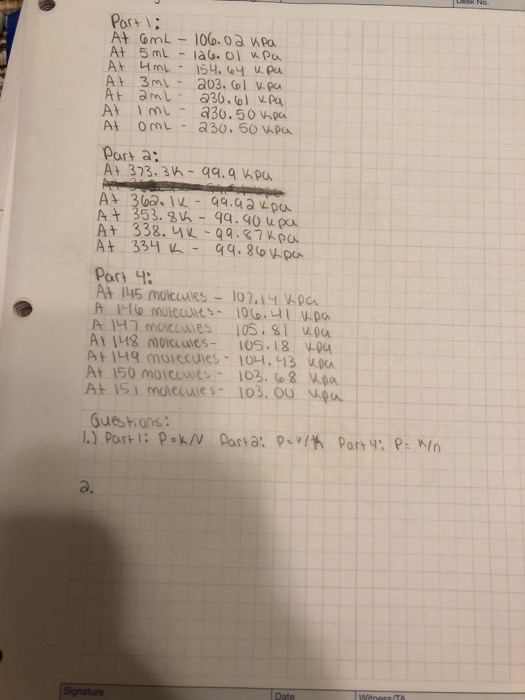 Desk No.
Part 1:
At 6mL - 106.02 kPa
At 5mL - 126.01 kPa
At 4mL - 154.64 kPa
At 3mL - 203.61 kPa
At 2mL - 230.61 kPa
At 1mL - 230.50 kPa
At 0mL - 230.50 kPa
Part 2:
At 373.3K - 99.9 kPa
At 362.1K - 99.92 kPa
At 353.8K - 99.90 kPa
At 338.4K - 99.87 kPa
At 334 K - 99.86 kPa
Part 4:
At 145 molecules - 107.14 kPa
A 146 molecules - 106.41 kPa
A 147 molecules 105.81 kPa
At 148 molecules - 105.18 kPa
At 149 molecules - 104.43 kPa
At 150 molecules - 103.68 kPa
At 151 molecules - 103.00 kPa
Questions:
1.) Part 1: P=K/V Part 2: Part 4: P= K/n
2.
Signature
Date
Witness/TA